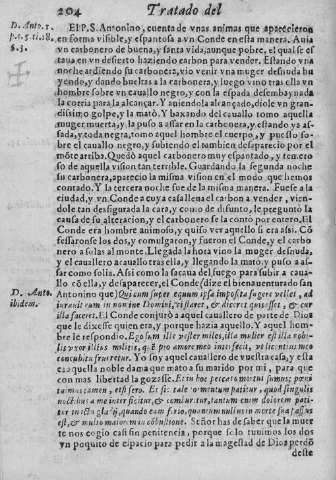 204 Tratado del
D. Anto. 1.
p. t. 5. ti. 18.
§. 1.
El P. S. Antonino, cuenta de vnas animas que aparecieron
en forma visible, y espantosa a vn Conde en esta manera. Auia
vn carbonero de buena, y santa vida, aunque pobre, el qual se es
taua en vn desierto haziendo carbon para vender. Estando vna
noche ardiendo su carbonera, vio venir vna muger desnuda hu
yendo, y dando bueltas a la carbonera, y luego vino tras ella vn
hombre sobre vn cauallo negro, y con la espada desembaynada
la corria para la alcançar. Y auiendola alcançado, diole vn gran-
dissimo golpe, y la mató. Y baxando del cauallo tomo aquella
muger muerta, y la puso a assar en la carbonera, y estando ya as-
sada, y toda negra, tomo aquel hombre el cuerpo, y puesto so-
bre el cauallo negro, y subiendo el tambien desaparecio por el
môte arriba. Quedò aquel carbonero muy espantado, y temero
so de aquella vision tan terrible. Guardando la segunda noche
su carbonera, aparecio la misma vision en el modo que hemos
contado. Y la tercera noche fue de la misma manera. Fuese a la
ciudad, y vn Conde a cuya casa llena el carbon a vender, vien-
dole tan desfigurada la cara, y como de disunto, le preguntò la
causa de su alteracion, y el carbonero se la conto por entero. El
Conde era hombre animoso, y quiso ver aquello si era assi. Cõ
fessaronse los dos, y comulgaron, y fueron el Conde, y el carbo-
nero a solas al monte. Llegada la hora vino la muger desnuda,
y el cauallero a cauallo tras ella, y llegando la mato, y puso a as-
sar como solia. Assi como la sacaua del fuego para subir a caua-
llo cõ ella, y desaparecer, el Conde (dize el bienauenturado san
D. Anto.
ibidem.
Antonino que) Qui cum super equum ipsa imposita fugere vellet, ad
iurauit eum in nomine Domini, vt staret, & diceret quis esset, & cur
illa faceret. El Conde conjurò a aquel cauallero de parte de Dios
que le dixesse quien era, y porque hazia aquello. Y aquel hom-
bre le respondio. Ego sum ille vester miles, ista mulier est illa nobi-
lis vxor illius militis, quæ pro amore mei interfecit, vt licentius meo
concubitu frueretur. Yo soy aquel cauallero de vuestra casa, y esta
era aquella noble dama que mato a su marido por mi, para que
con mas libertad la gozasse. Et in hoc peccato mortui sumus; pœni
tuimus tamen, etsi sero. Et sic tale tormentum patitur, quod singulis
noctibus a me interficitur, & comburitur, tantum enim dolorem pati-
tur
est, & multo maiorem combustione. Señor has de saber que la muer
te nos cogio casi sin penitencia, porque solo tuuimos los dos
vn poquito de espacio para pedir a la magestad de Dios perdõ
deste